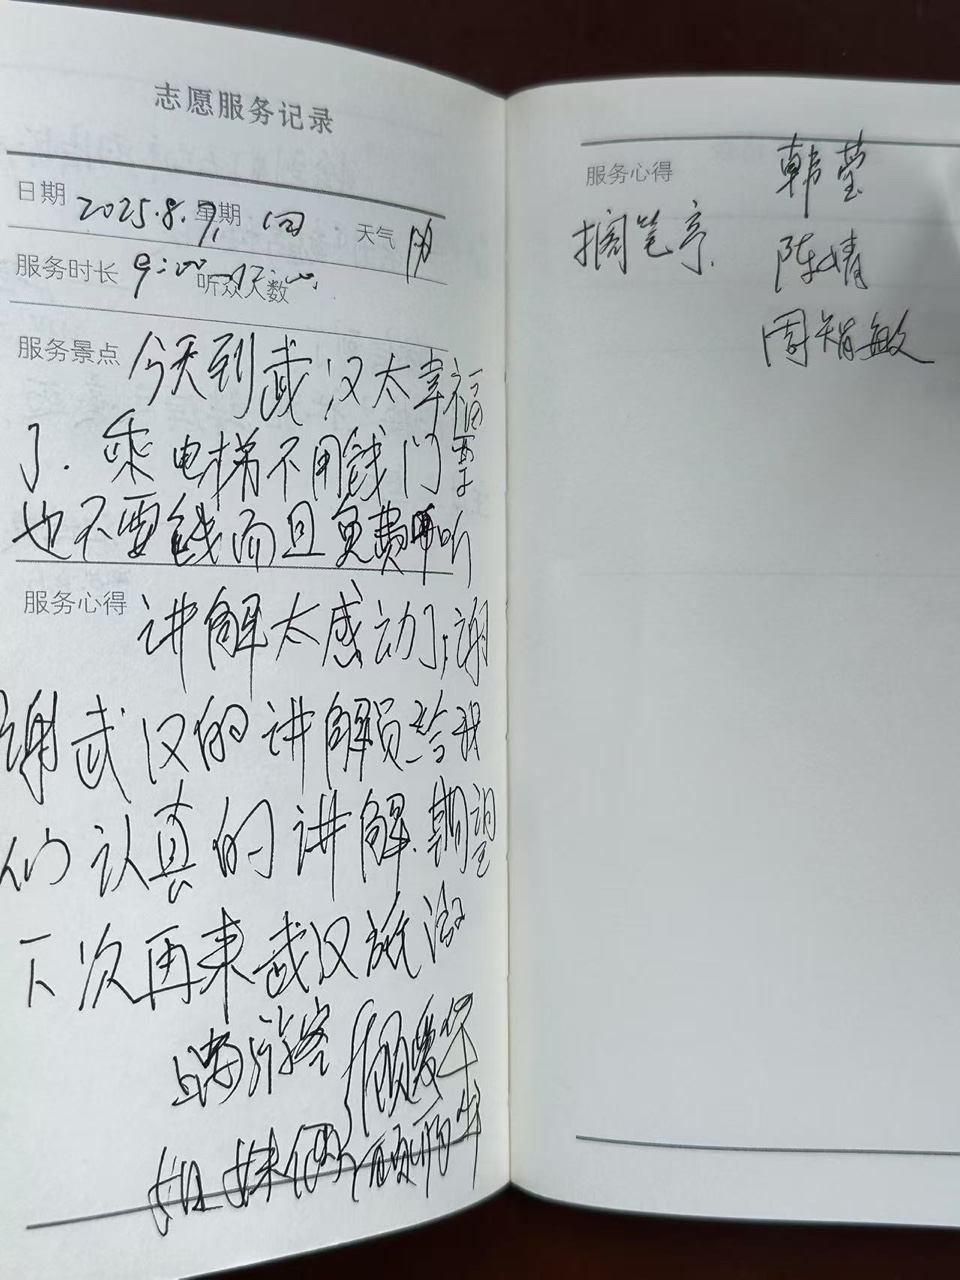 志愿服务记录
日期 2025.8.7. 星期 四 天气 阴
服务时长 9:00—12:00 听众人数
服务景点 今天到武汉太幸福
了.乘电梯不用钱门票
也不要钱而且免费听
服务心得 讲解太感动了,谢
谢武汉的讲解员给我
们认真的讲解.期望
下次再来武汉旅游
上海游客
姐妹俩
服务心得 韩莹
搁笔亭. 陈婧
周智敏